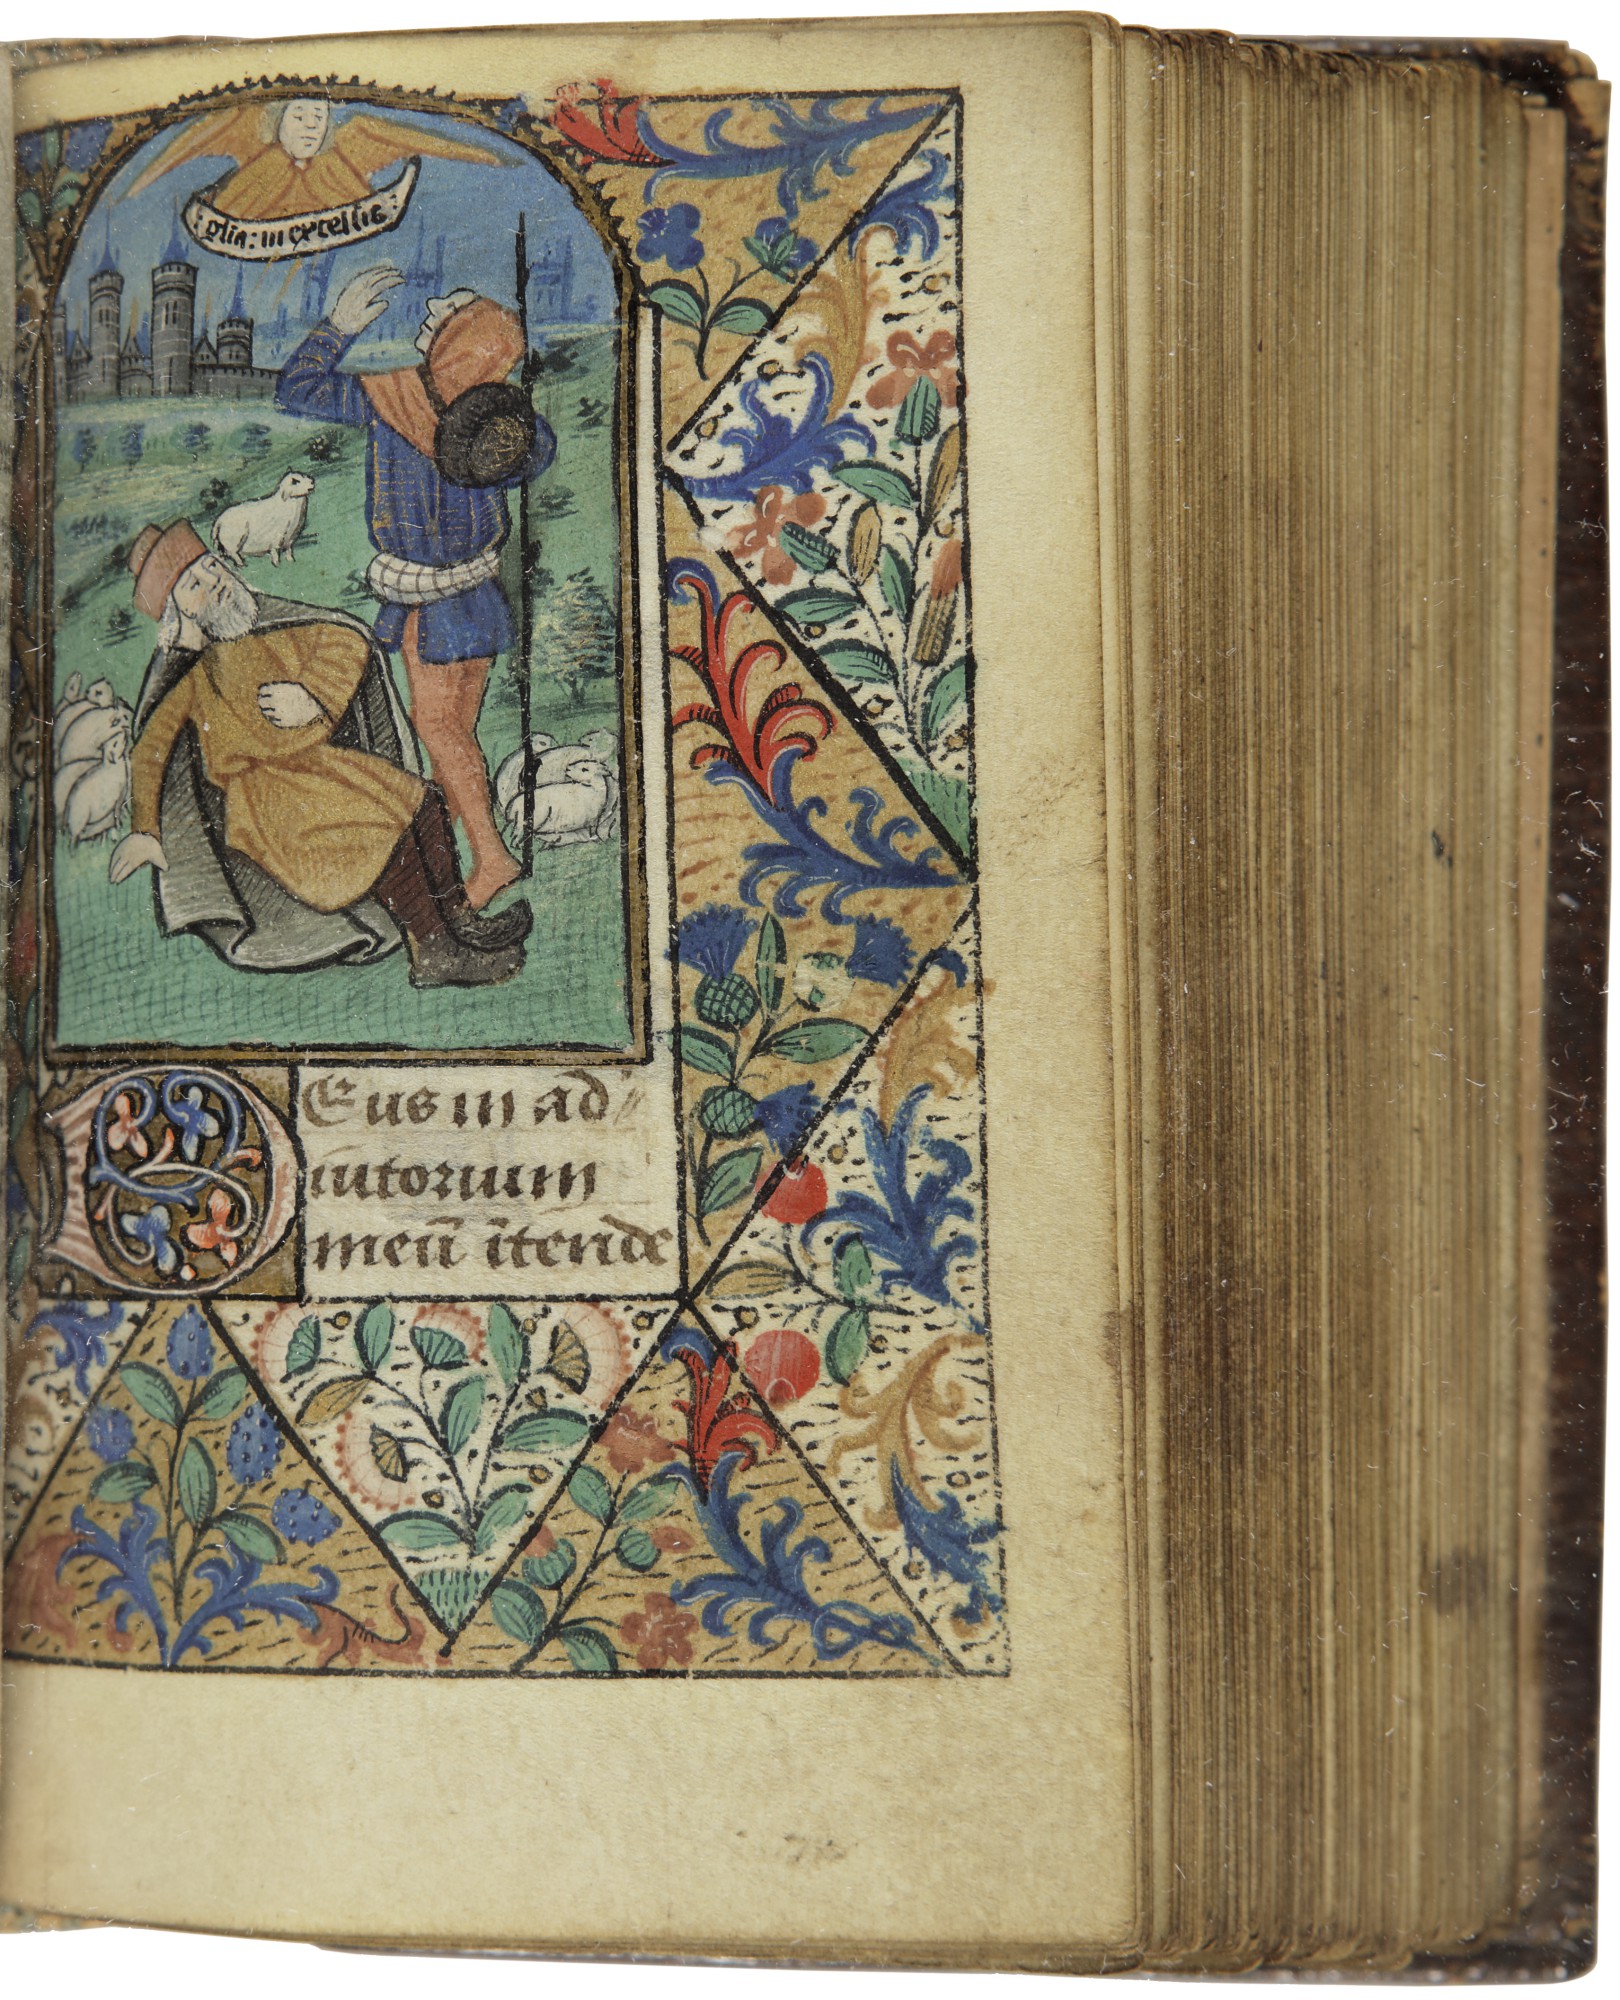 glia: in excelsis
Deus in ad
iutorium
meū ītende